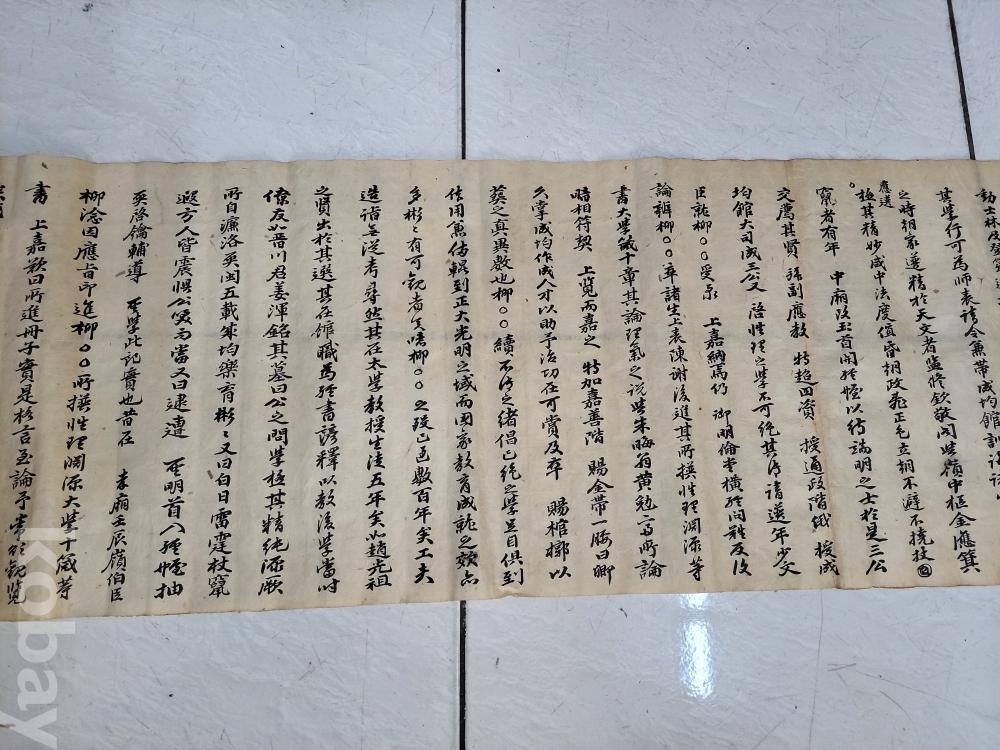 其學行可爲師表請令兼帶成均館
之時朝家遴精於天文者監修欽敬閣柴嶺中樞金應箕
應選
極其精妙咸中法度値昏朝政亂正毛立朝不避不撓投
竄者有年 中廟改玉首開經幄以待端明之士於是三公
交薦其賢 孫副應敎 特超四資 授通政階俄 授成
均館大司成三公又 啓性理之學不可絶其傳請選年少文
臣就柳○○受來 上嘉納焉仍 御明倫堂橫經問難反復
論辨柳○○率諸生上表陳謝後進其所撰性理淵源等
書大學箴十章其論理氣之說與朱晦翁黃勉齋所論
暗相符契 上覽而嘉之 特加嘉善階 賜金帶一腰曰卿
久掌成均作成人才以助予治功在可賞及卒 賜棺槨以
葬之眞異數也柳○○續不傳之緖倡已絶之學足目俱到
體用兼備輥到正大光明之域而國家敎育成就之效亦
多彬〻有可觀者矣噫柳○○之歿已過數百年矣工夫
造詣無從考尋然其在太學敎授生徒五年矣如趙光祖
之賢出於其選其在館職爲經書諺釋以敎後學當時
僚友如晉川君姜渾銘其墓曰公之問學極其精純添厥
所自濂洛關閩五載成均樂育彬〻又曰白日雷霆杖竄
遐方人皆震慴公笑而當又曰逮遭 聖明首入經幄抽
英啓鑰輔導 聖學此記實也昔在 孝廟壬辰嶺伯臣
柳淰因應旨印進柳○○所撰性理淵源大學十箴等
書 上嘉歎曰所進冊子實是格言至論予當於觀覽
kobay